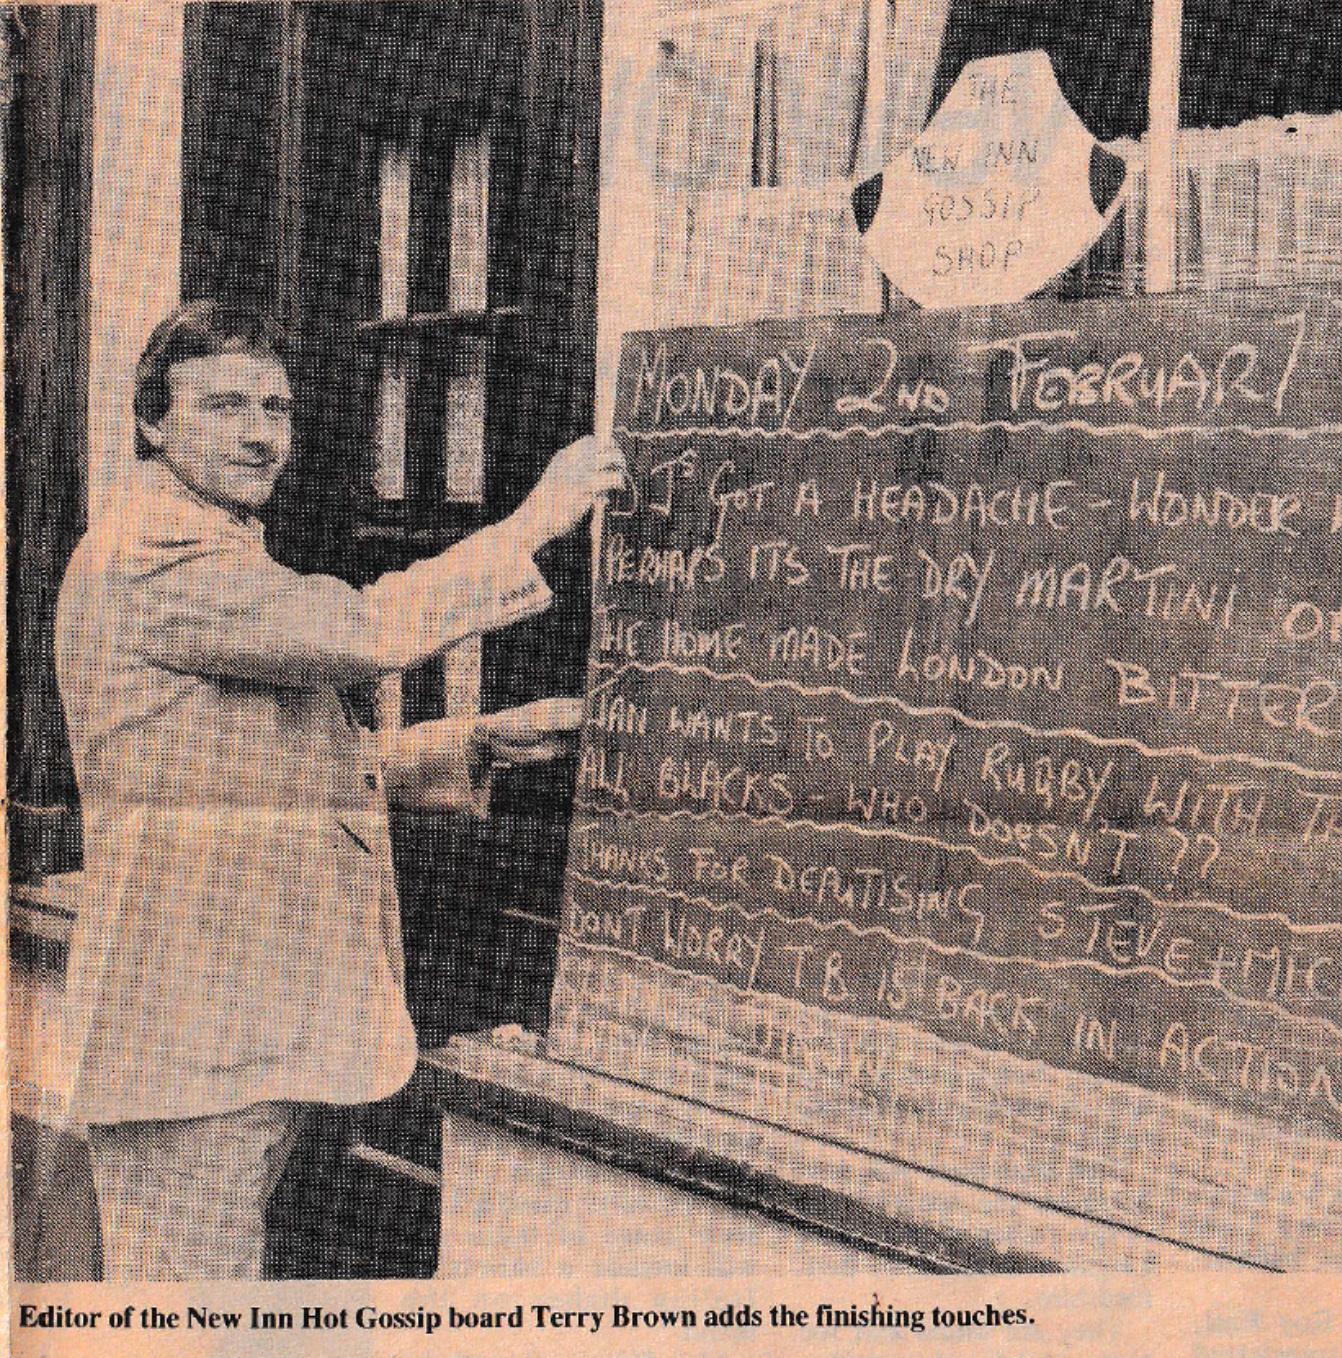 THE
NEW INN
GOSSIP
SHOP
MONDAY 2ND FEBRUARY
GOT A HEADACHE - WONDER
PERHAPS ITS THE DRY MARTINI OR
THE HOME MADE LONDON BITTER
JAN WANTS TO PLAY RUGBY WITH
ALL BLACKS - WHO DOESN'T ??
THANKS FOR DEPUTISING STEVE +
DONT WORRY TB IS BACK IN ACTION
Editor of the New Inn Hot Gossip board Terry Brown adds the finishing touches.